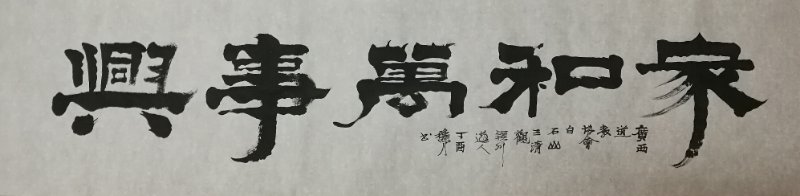 家和萬事興
廣西道教協會白石山三清觀道人丁酉